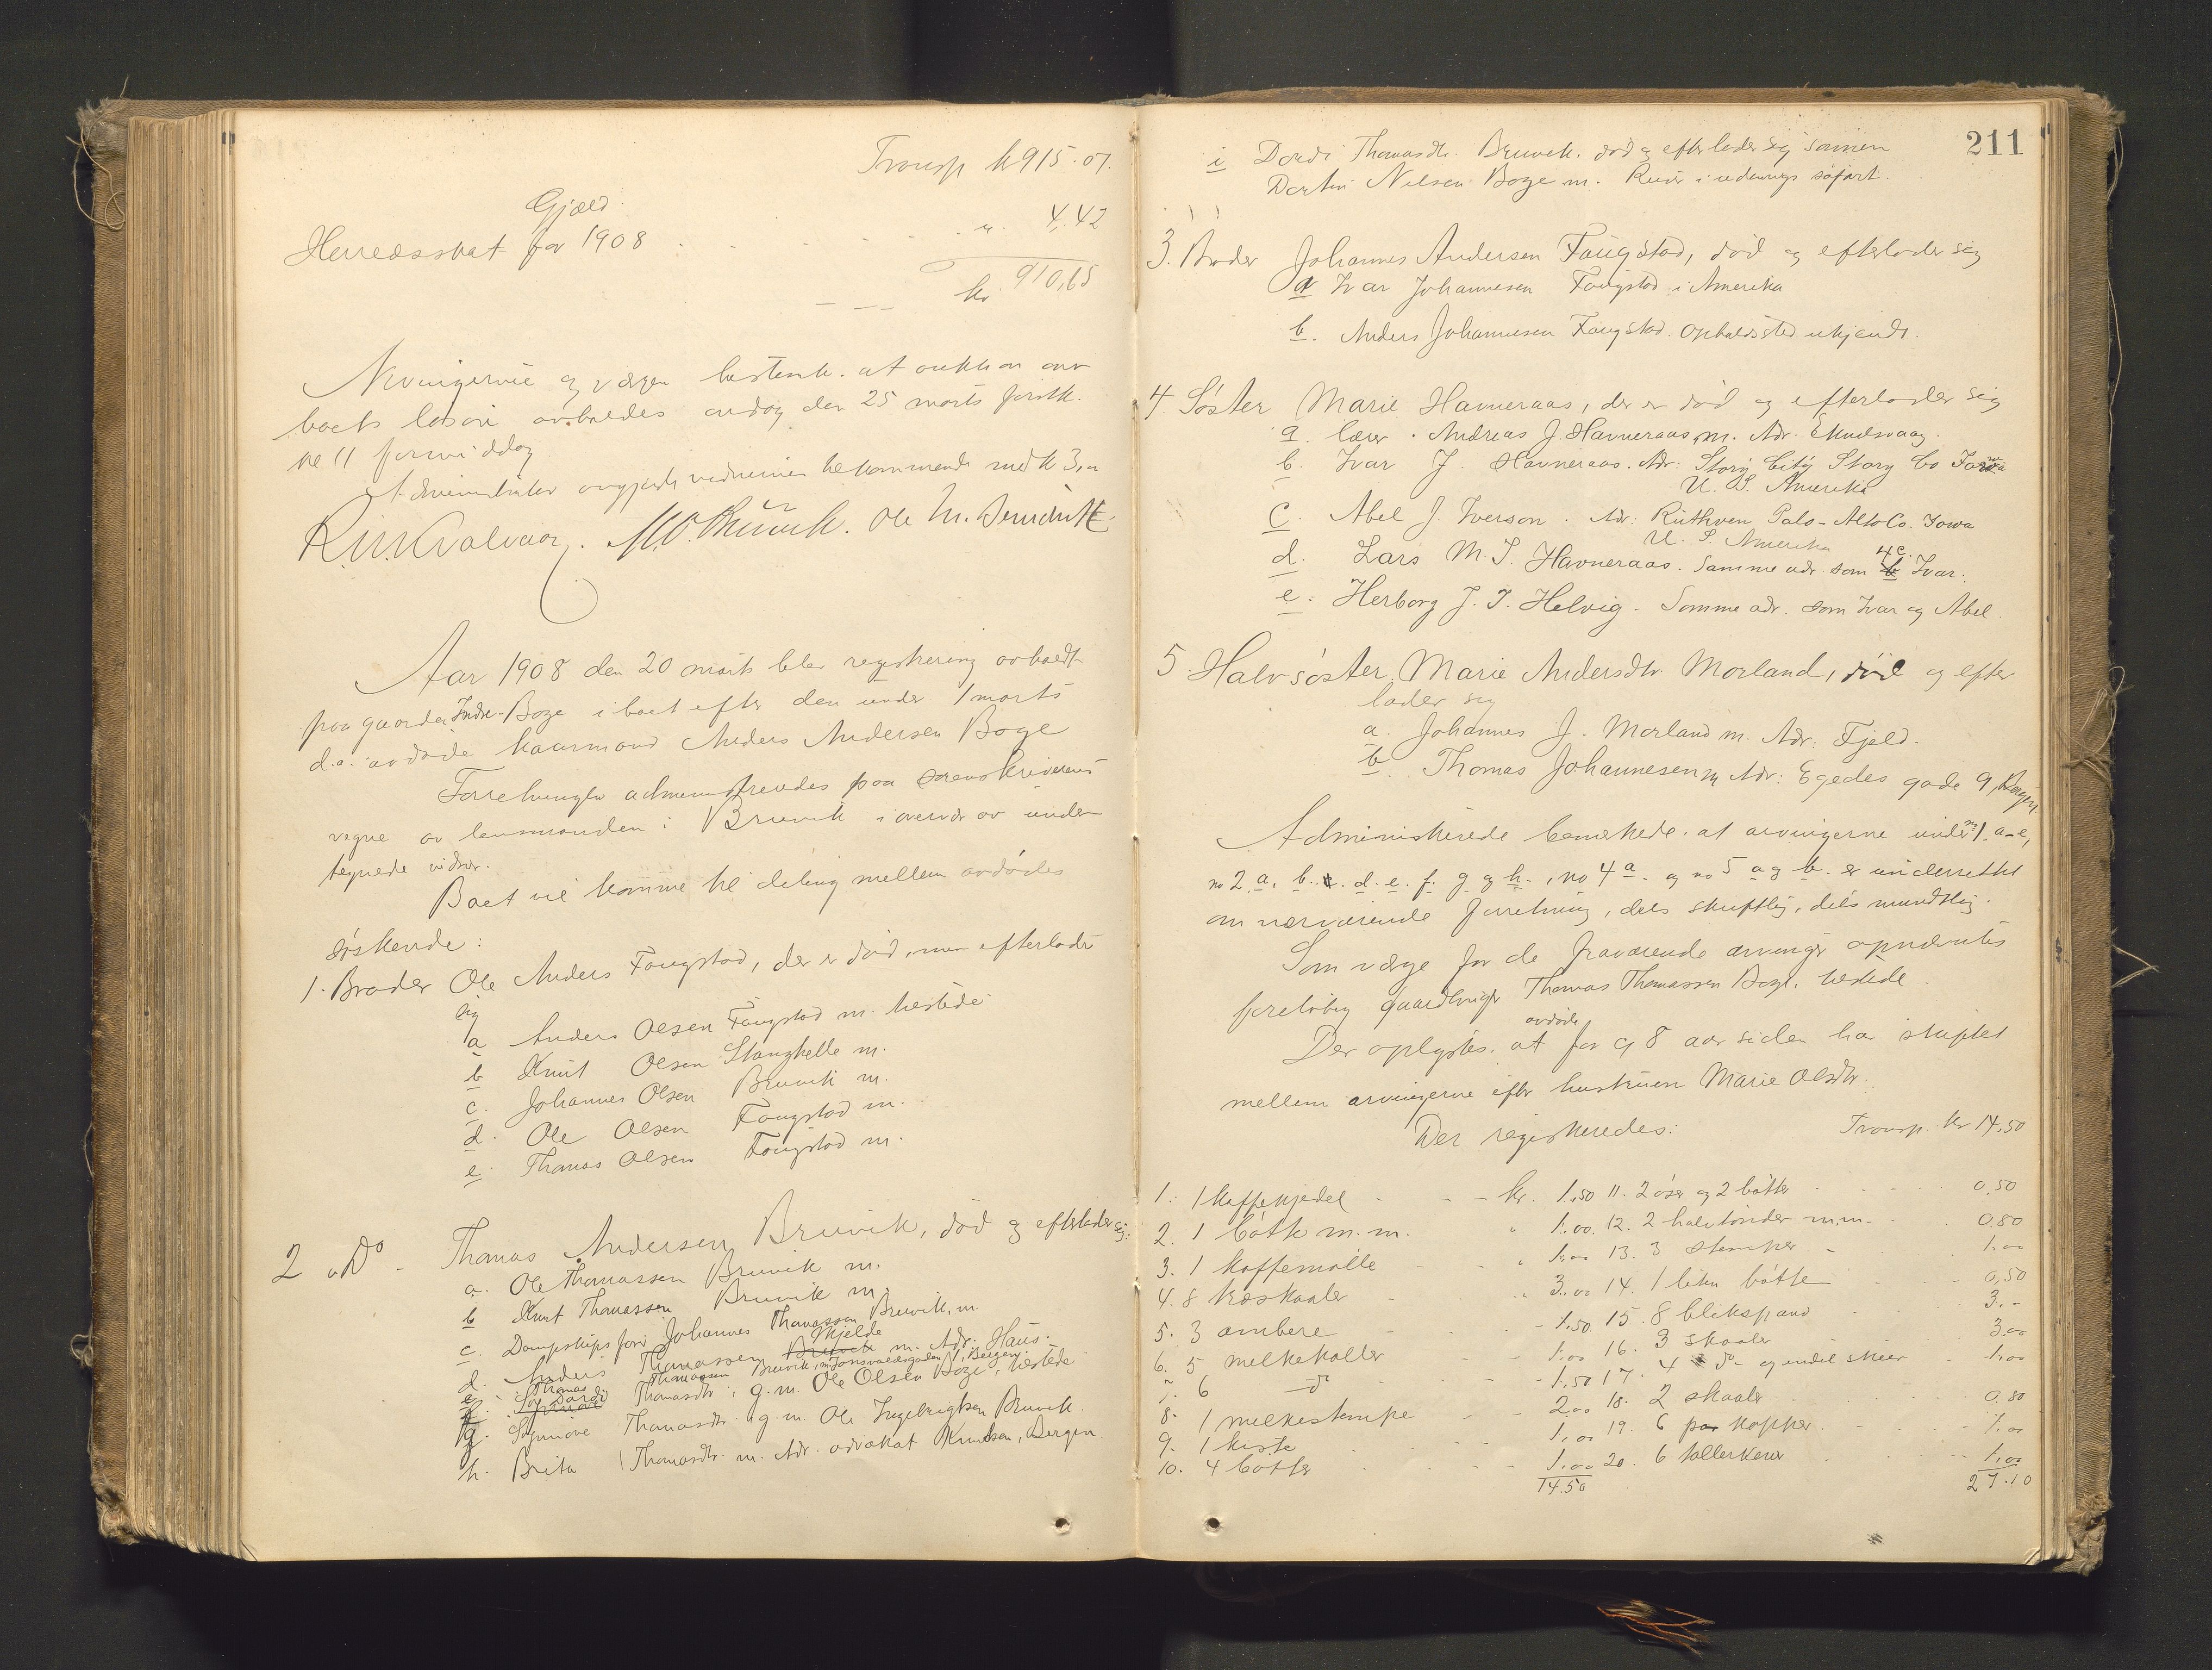 Transp kr 915.07.
Gjæld.
Herredsskat for 1908 . . . . . . " 4.42
kr 910,65
Arvingerne og vergen bestemte at auktion over
boets løsøre avholdes ondag den 25 marts førstk.
kl 11 formiddag
Administrator avgjorde vidnerne bekommende med kr 3,00
Ole M.
Aar 1908 den 20 marts blev registrering avholdt
paa gaarden Indre-Boge i boet efter den under 1 marts
d.a. avdøde kaarmand Anders Andersen Boge
Forretningen administreredes paa sorenskriverens
vegne av lensmanden i Bruvik i overvær av under-
tegnede vidner.
Boet vil komme til deling mellem avdødes
søskende:
1. Broder Ole Anders Fougstad, der er død, men efterlader
sig
a Anders Olsen Fougstad m. tilstede
b Knut Olsen Stanghelle m.
c. Johannes Olsen Bruvik m.
d. Ole Olsen Fougstad m.
e. Thomas Olsen Fougstad m.
2 Do - Thomas Andersen Bruvik, død og efterlader sig:
a. Ole Thomassen Bruvik m.
b Knut Thomassen Bruvik m.
c. Dampskipsfører Johannes Thomassen Bruvik, m.
d. Anders Thomassen Bruvik Mjelde m. Adr. Haus.
e. Thomas Thomassen Bruvik, m. Jonsvoldsgaden 1, Bergen.
f. Dordi Thomasdtr. g. m. Ole Olsen Boge, tilstede
g. Synnøve Thomasdtr. g. m. Ole Ingebrigtsen Bruvik.
h. Brita Thomasdtr. m. Adr. advokat Knudsen, Bergen.
211
i Dordi Thomasdtr. Bruvik. død og efterlader sig sønnen
Martin Nilsen Boge m. Reiser i udenrigs søfart.
3. Broder Johannes Andersen Fougstad, død og efterlader sig
a Ivar Johannesen Fougstad i Amerika
b. Anders Johannesen Fougstad. Opholdssted ukjendt.
4. Søster Marie Havneraas, der er død og efterlader sig
a. lærer Andreas J. Havneraas, m. Adr. Eknesvaag.
b. Ivar J. Havneraas. Adr: Story City Story Co Iowa
U. S. Amerika
c. Abel J. Iverson. Adr: Ruthven Palo-Alto Co. Iowa
U. S. Amerika
d. Lars M. J. Havneraas. Samme adr. som b 4c. Ivar.
e. Herborg J. J. Helvig. Samme adr. som Ivar og Abel
5. Halvsøster Marie Andersdtr. Morland, død og efter
lader sig
a. Johannes J. Morland m. Adr: Fjeld.
b. Thomas Johannesen m Adr: Egedes gade 9, Bergen
Administrerede bemerkede at arvingerne under no 1. a-e,
no 2 a, b. c. d. e. f. g og h., no 4 a. og no 5 a og b. er underrettet
om nærværende forretning, dels skriftlig, dels mundtlig.
Som verge for de fraværende arvinger opnævntes
foreløbig gaardbruger Thomas Thomassen Boge. tilstede
Der oplystes at avdøde for ca 8 aar siden har skiftet
mellem arvingerne efter hustruen Marie Olsdtr.
Der registreredes: Transp. kr 14.50
1. 1 kaffekjedel - - - kr. 1.50 11. 2 øser og 2 bøtter 0.50
2. 1 bøtte m.m. " 1.00 12. 2 halvtønder m.m. 0.80
3. 1 kaffemølle " 1.00 13. 3 stamper 1.00
4. 8 træskaaler " 3.00 14. 1 liten bøtte 0,50
5. 3 ambere - 1.50 15. 8 blikspand 3.-
6. 5 melkekoller - 1.00 16. 3 skaaler 3.00
7. 6 -do- - 1.50 17. 4 do og endel skeer 1.00
8. 1 melkestampe - 2.00 18. 2 skaaler 0.80
9. 1 kiste 1.00 19. 6 par kopper 1.00
10. 4 bøtter 1.00 20. 6 tallerkener 1.00
14.50 27.10